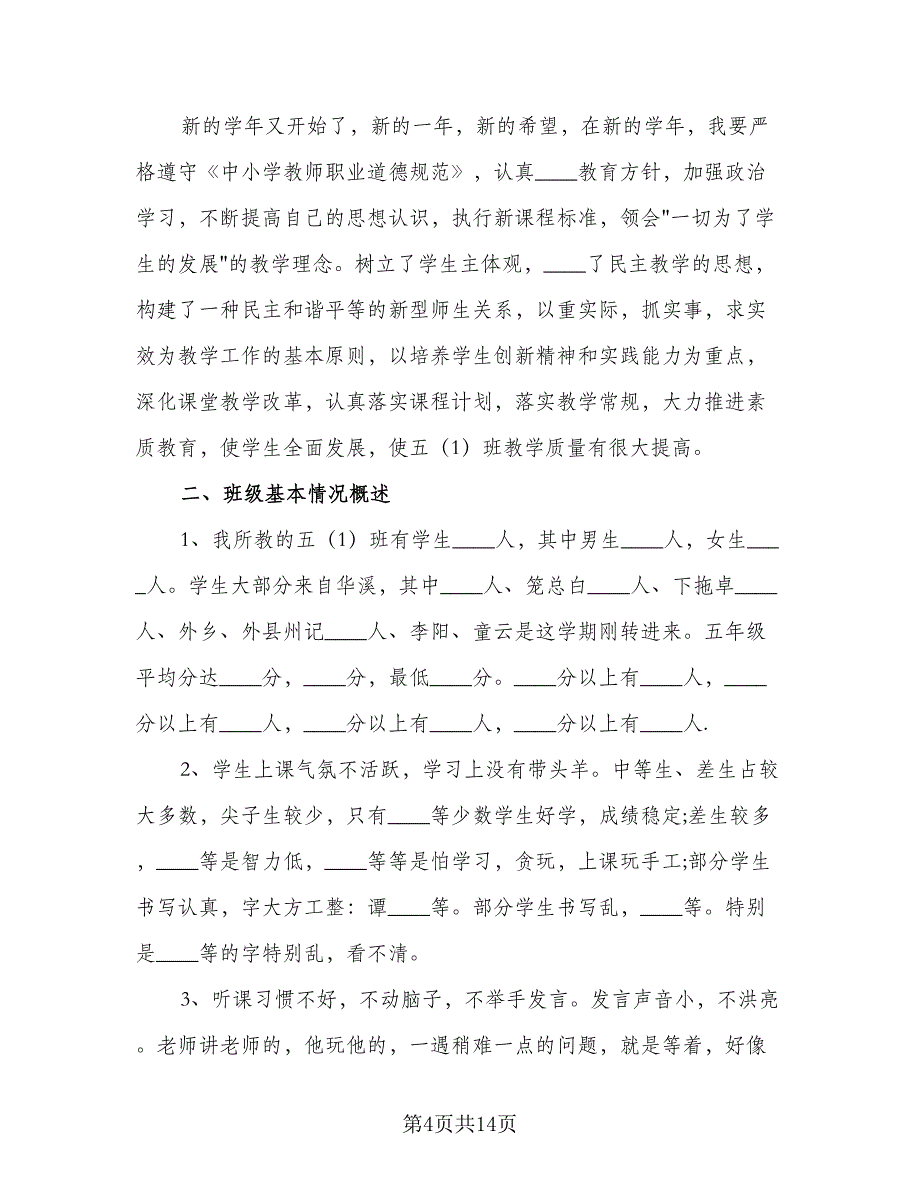 新的学年又开始了，新的一年，新的希望，在新的学年，我要严
格遵守《中小学教师职业道德规范》，认真____教育方针，加强政治
学习，不断提高自己的思想认识，执行新课程标准，领会"一切为了学
生的发展"的教学理念。树立了学生主体观，____了民主教学的思想，
构建了一种民主和谐平等的新型师生关系，以重实际，抓实事，求实
效为教学工作的基本原则，以培养学生创新精神和实践能力为重点，
深化课堂教学改革，认真落实课程计划，落实教学常规，大力推进素
质教育，使学生全面发展，使五（1）班教学质量有很大提高。
二、班级基本情况概述
1、我所教的五（1）班有学生____人，其中男生____人，女生___
_人。学生大部分来自华溪，其中____人、笼总白____人、下拖卓____
人、外乡、外县州记____人、李阳、童云是这学期刚转进来。五年级
平均分达____分，____分，最低____分。____分以上有____人，____
分以上有____人，____分以上有____人，____分以上有____人.
2、学生上课气氛不活跃，学习上没有带头羊。中等生、差生占较
大多数，尖子生较少，只有____等少数学生好学，成绩稳定;差生较多
，____等是智力低，____等等是怕学习，贪玩，上课玩手工;部分学生
书写认真，字大方工整：谭____等。部分学生书写乱，____等。特别
是____等的字特别乱，看不清。
3、听课习惯不好，不动脑子，不举手发言。发言声音小，不洪亮
。老师讲老师的，他玩他的，一遇稍难一点的问题，就是等着，好像
第4页共14页